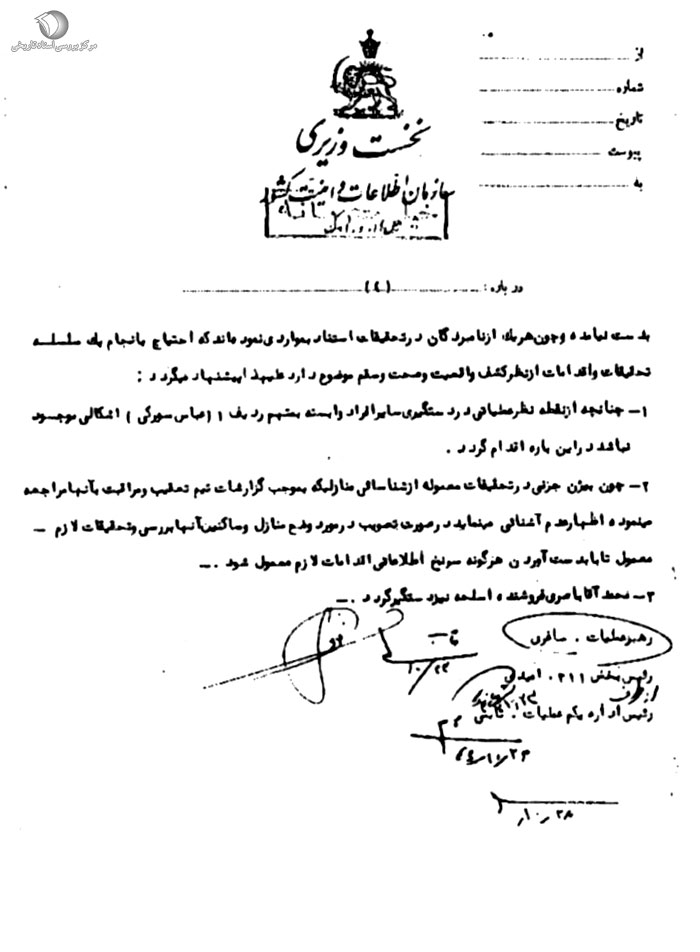 مرکز بررسی اسناد تاریخی
از
شماره
تاریخ
پیوست
به
نخست وزیری
سازمان اطلاعات و امنیت کشور
درباره : (٤)
بدست نیامده و چون هریك از نامبردگان در تحقیقات استناد بمواردی نموده‌اند که احتیاج بانجام یك سلسله
تحقیقات و اقدامات از نظر کشف واقعیت وصحت وسقم موضوع دارد علیهذا پیشنهاد میگردد :
۱- چنانچه از نقطه نظر عملیاتی در دستگیری سایر افراد وابسته بمتهم ردیف ۱ (عباس سورکی ) اشکالی موجود
نباشد در این باره اقدام گردد .
۲- چون بیژن جزنی در تحقیقات معموله از شناسائی منازلیکه بموجب گزارشات تیم تعقیب ومراقبت بآنها مراجعه
مینموده اظهار عدم آشنائی مینماید در صورت تصویب در مورد وضع منازل وساکنین آنها بررسی وتحقیقات لازم -
معمول تا با بدست آوردن هرگونه سرنخ اطلاعاتی اقدامات لازم معمول شود .-
۳- محمد آقا باصری فروشنده اسلحه نیز دستگیر گردد .-
رهبر عملیات .
۱۰/۲۳
رئیس بخش ۳۱۱ .
از طرف
رئیس اداره یکم عملیات . ثابتی
۲۸ ر ۱۰ر